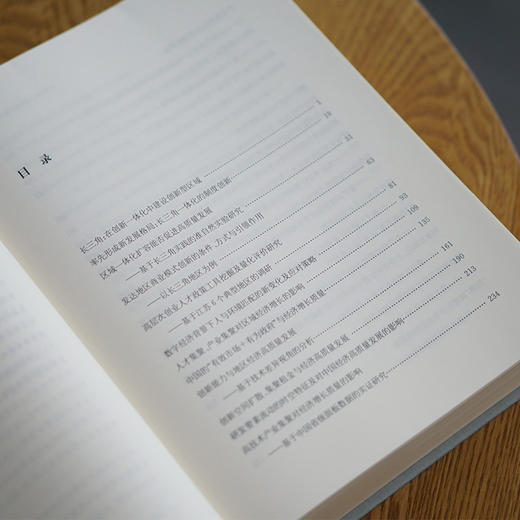 目 录
长三角:在创新一体化中建设创新型区域 1
率先形成新发展格局:长三角一体化的制度创新 19
区域一体化扩容能否促进高质量发展
——基于长三角实践的准自然实验研究 31
发达地区商业模式创新的条件、方式与引领作用
——以长三角地区为例 63
高层次创业人才政策工具挖掘及量化评价研究
——基于江苏6个典型地区的调研 81
数字经济背景下人与环境匹配的新变化及应对策略 93
人才集聚、产业集聚对区域经济增长的影响 109
中国的“有效市场+有为政府”与经济增长质量 135
创新能力与地区经济高质量发展
——基于技术差异视角的分析 161
创新空间扩散、集聚租金与经济高质量发展 190
研发要素流动的时空特征及对中国经济高质量发展的影响 213
高技术产业集聚对经济增长质量的影响
——基于中国省级面板数据的实证研究 234